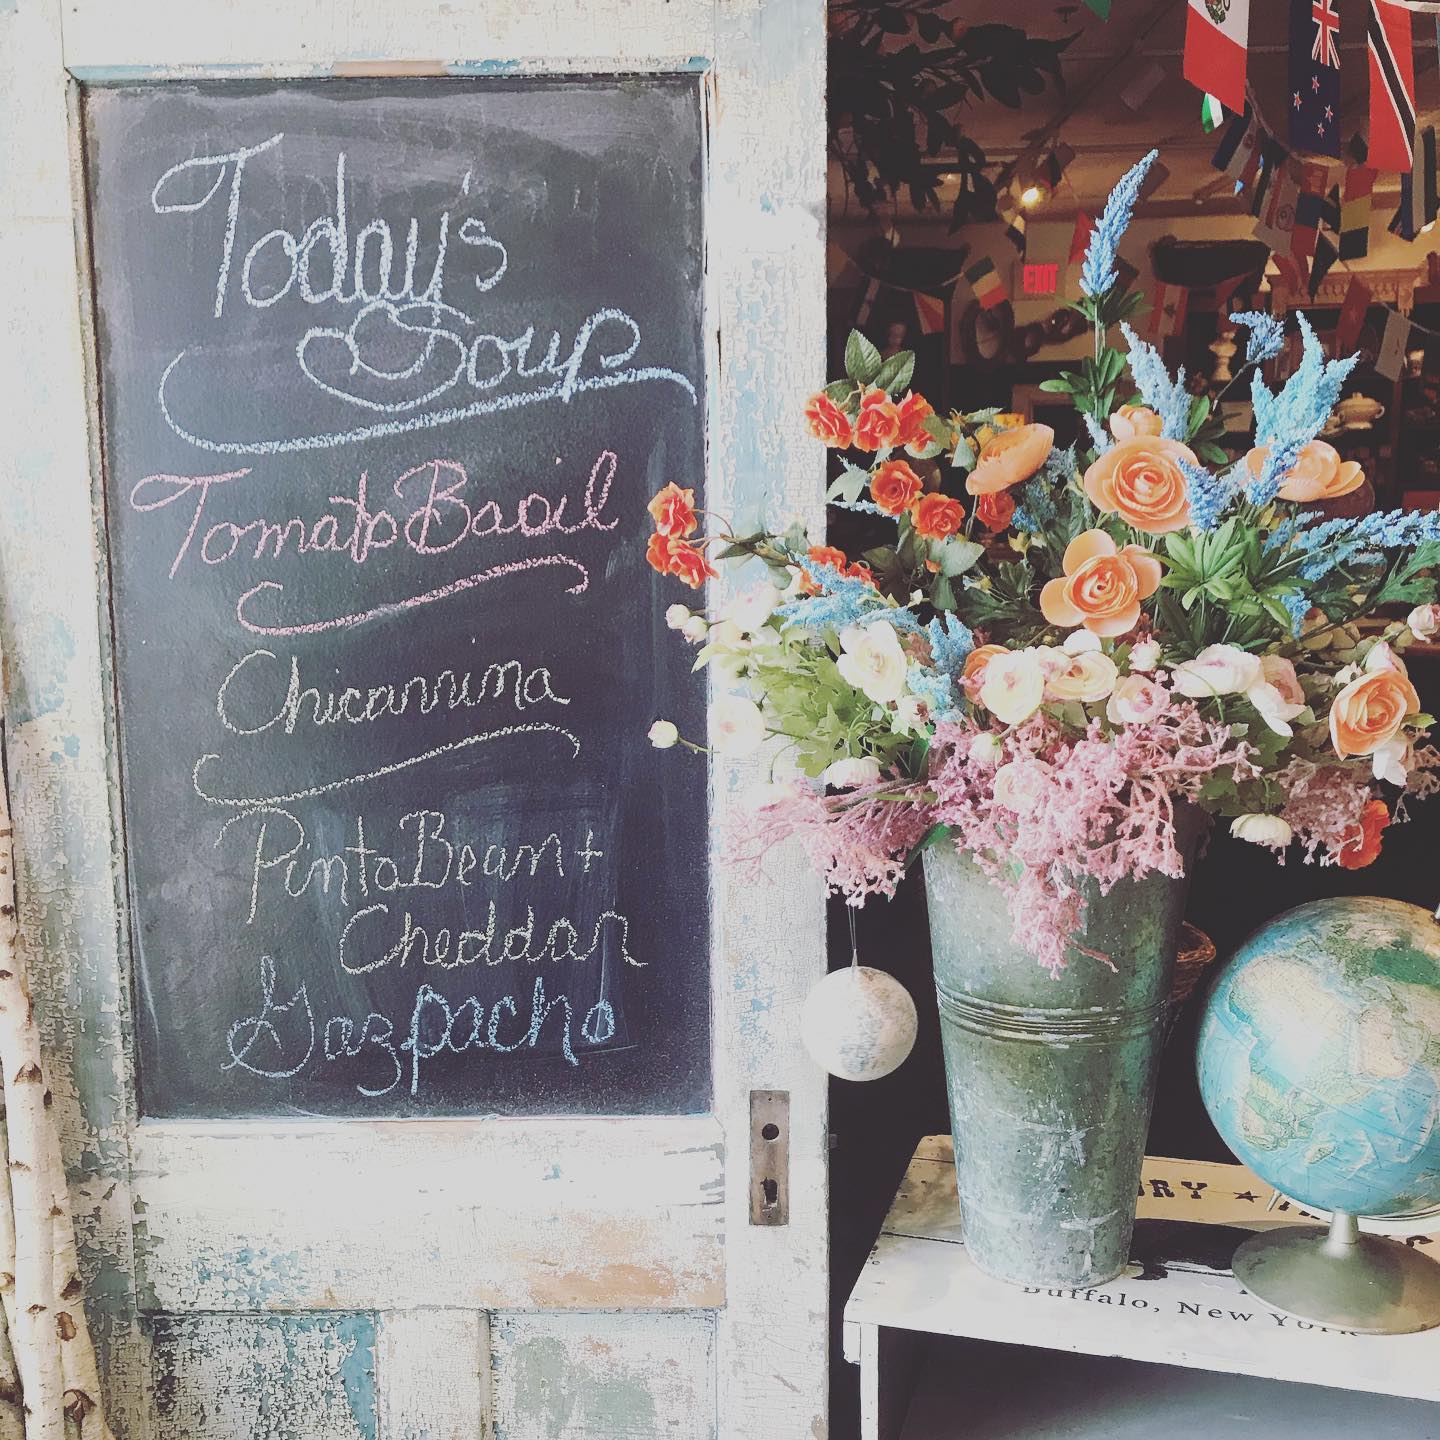 Today's
Soup
Tomato Basil
Chicarrina
Pinto Bean +
Cheddar
Gazpacho
EXIT
Buffalo, New York